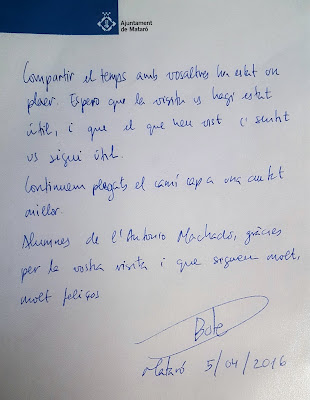 Ajuntament
de Mataró
Compartir el temps amb vosaltres ha estat un
plaer. Espero que la visita us hagi estat
útil, i que el que heu vist i sentit
us sigui útil.
Continuem plegats el camí cap a una
millor.
Alumnes de l'Antonio Machado, gràcies
per la vostra visita i que siguem molt,
molt feliços
Bote
Mataró 5/04/2016